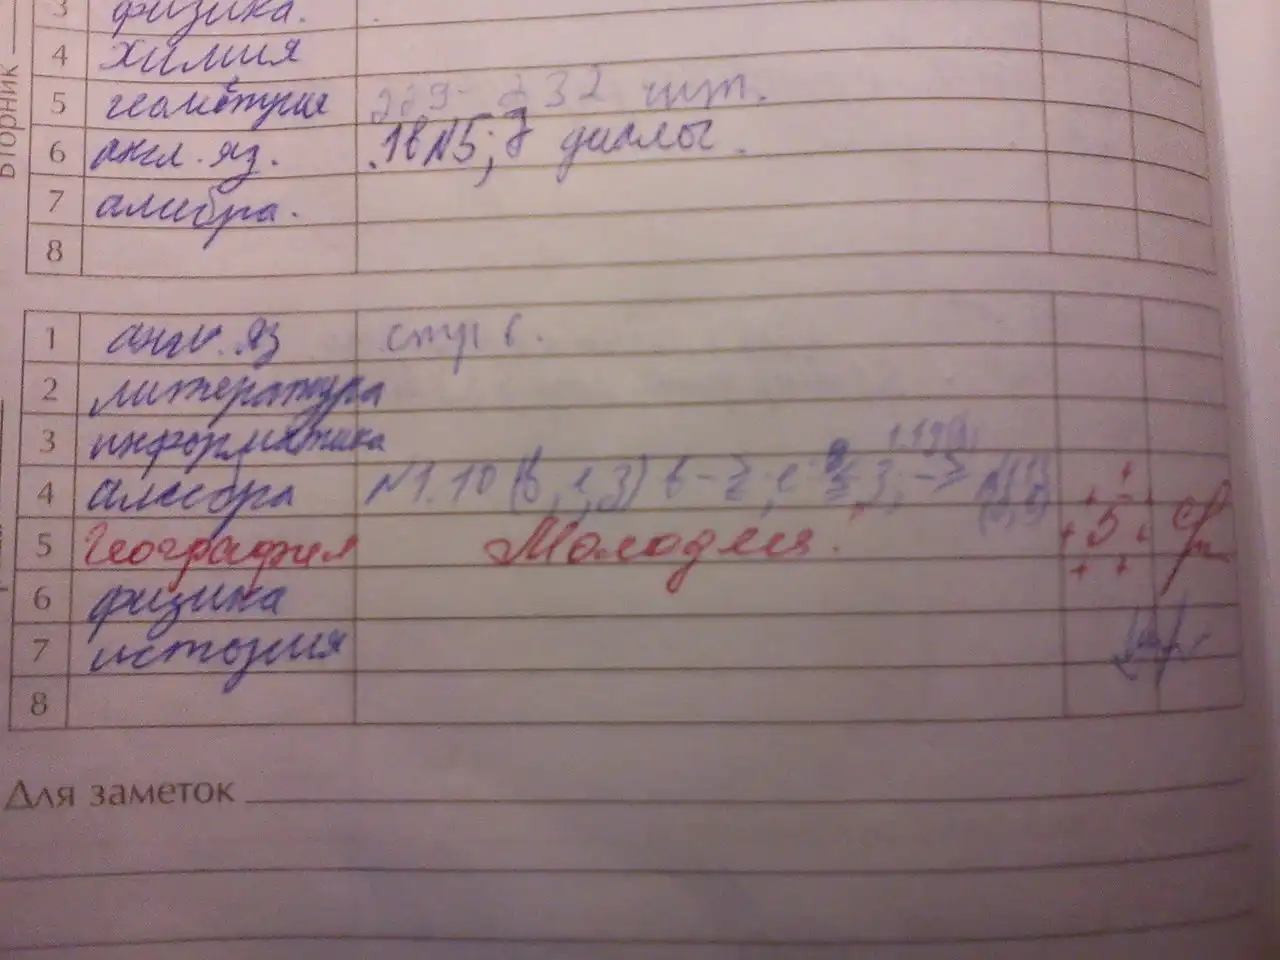 Вторник
3 физика.
4 химия
5 геометрия 229- 232 чит.
6 англ. яз. 1в №5; 7 диалог.
7 алгебра.
8
1 англ. яз стр 6.
2 литература
3 информатика
4 алгебра №1.10 (в, е, з)
5 География Молодец. 5
6 физика
7 история
8
Для заметок